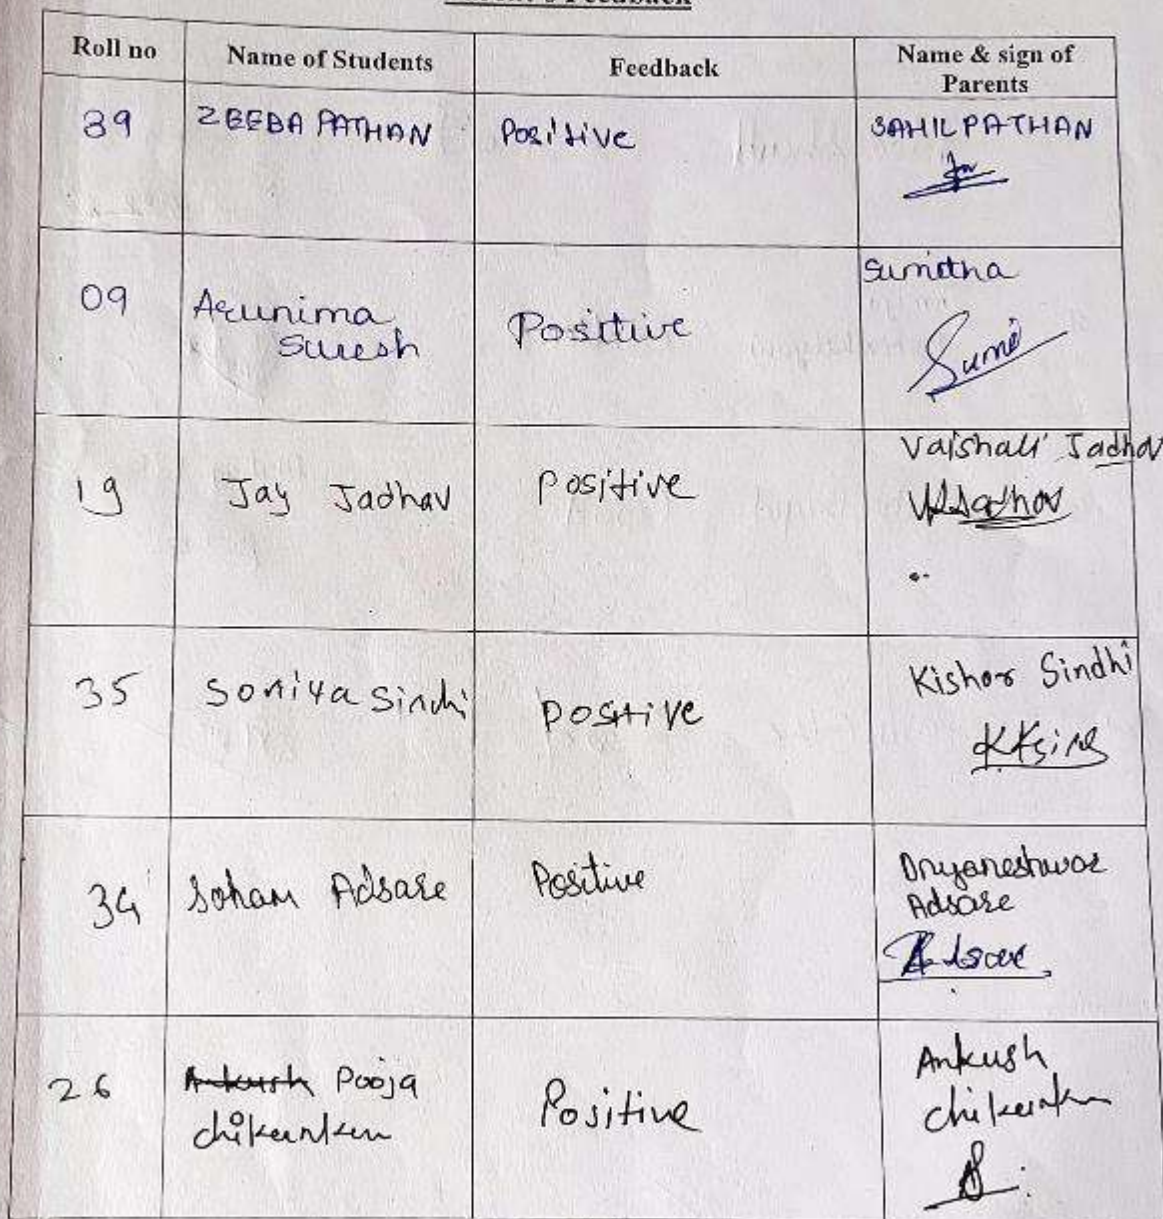 Feedback
Roll no Name of Students Feedback Name & sign of
Parents
39 ZEEBA PATHAN Positive SAHIL PATHAN
09 Arunima Positive Sumitha
Suresh
Sumi
19 Jay Jadhav Positive Vaishali Jadhav
VKJadhav
35 Soniya Sindhi Positive Kishor Sindhi
34 Soham Adsare Positive Dnyaneshwar
Adsare
Adsare
26 Ankush Pooja Positive Ankush